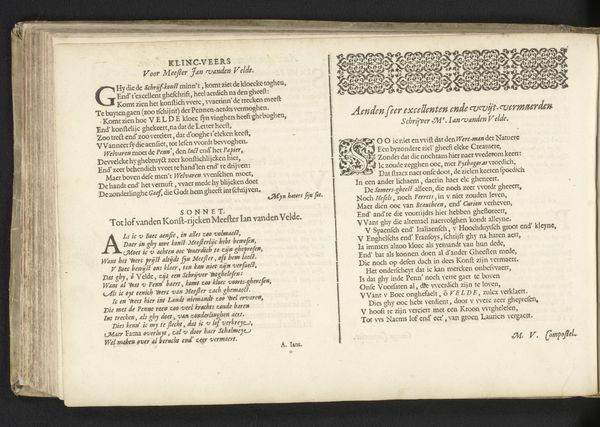 KLINC-VEERS
Voor Meester Jan vanden Velde.
GHy die de Schrijf-konst minn't, komt ziet de kloecke toghen,
End' t'excellent gheschrift, heel aerdich na den gheest:
Komt zien het konstlich veerc, vvaerinn' de trecken meest
Te buyten gaen (zoo schijnt) der Pennen-aerds vermoghen.
Komt zien hoe VELDE kloec syn vinghers heeft gheboghen,
End' konstelijc ghekeert, na dat de Letter heest,
Zoo trect end' zoo verciert, dat d'ooghe' t'elcken keest,
VVanneer sy die aensiet, tot lesen vvordt bevvoghen.
Wel moet de Penn', den Inct end' het Papier,
Devvelcke hy ghebruyct zeer konstlichlijcken hier,
End' zeer behendich vveet te handl'en end' te drijven:
Maer boven dese men't vvenschen moet,
De handt end' het vernuft, vvaer mede hy blijcken doet
De zonderlinghe Gaef, die Godt hem gheeft int schrijven.
Myn haters sijn sie.
SONNET.
Tot lof vanden Konst-rijcken Meester Ian vanden Velde.
ALs ic v Boec aensie, in alles zoo volmaect,
Daer in ghy uwe konst Meesterlijc hebt bewesen,
Moet ic v achten oec weerdich te zijn ghepresen,
Want het Werc prijst altijdt syn Meester, alst hem loect.
V Boec betuijcht ons klaer, ten kan niet zijn versaect,
Dat ghy, ô Velde, zijt een Schrijver
Want al wat v Penn' baert, komt zoo kloec voorts-gheresen,
Als ic oyt eenich werc van Meester zach ghemaect.
Ic en weet hier int Landt niemande zoo wel ervaren,
Die met de Penne zoen zoo veel krachts zoude baren
Int trecken, als ghy doet, van zonderlinghen aert.
Dies kenn' ic my te slecht, dat ic v lof verbreye,
Maer Fama overluyt, zal v door haer Schalmeye
Wel maken over al berucht end' zeer vermeert.
A. Ians.
Aenden seer excellenten ende vvijt-vermaerden
Schrijver Mr. Ian vanden Velde.
SOO ic niet en vvist dat den Werc-man der Natuere
Een byzondere ziel' gheeft elcke Creatuere,
Zonder dat die nochtans hier naer vvederom keert:
Ic zoude zegghen ooc, met Pythagoras vroedich,
Dat straex naer onse door, de zielen keeren spoedich
In een ander lichaem, daerin haer elc gheneert.
De Somers-gheest alleen, die noch zeer vvordt gheeert,
Noch Hessels, noch Perrets, in v niet zouden leven,
Maer dien ooc van Beauchesne, end' Curion verheven,
End' and're die voortijds hier hebben ghefloreert,
VVant ghy die alternael naervolghen kondt alleyne.
V Spaensch end' Italiensch, v Hoochduytsch goet end' kleyne,
V Enghelsch end' Fransoys, schrijft ghy na haren aert,
Ia immers alzoo kloec als yemandt van hun dede,
End' bat als konnen doen al d'ander Gheesten mede,
Die noch op desen dach in dees Konst zijn vermaert.
Het onderscheyt dat ic kan mercken onbesvvaert,
Is dat ghy inde Penn' noch verre gaet te boven
Onse Voorsaten al, die vveerdich zijn te loven,
VVant v Boec onghefaelt, ô VELDE, zulcx verklaert.
Dies ghy ooc hebt verdient, door v vverc zeer ghepresen,
V hooft te zijn verciert met een Kroon vvtghelesen,
Tot vvs Naems lof end' eer', van groen Lauriers vergaert.
M. V. Compostel.